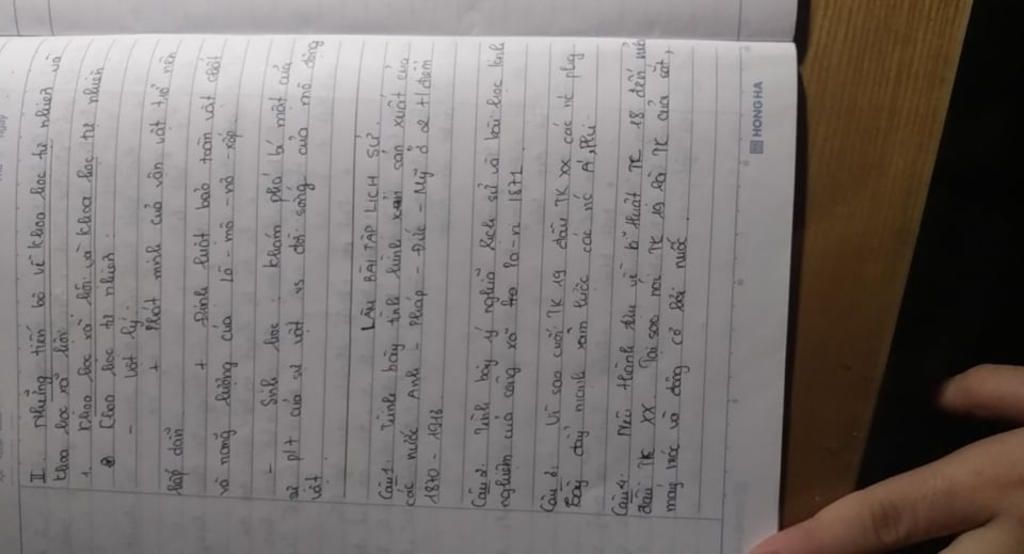 II. Những tiến bộ về khoa học tự nhiên và
khoa học xã hội
1. Khoa học xã hội và khoa học tự nhiên
Khoa học tự nhiên.
- Vật lý:
+ Phát minh của vạn vật trở nên
hấp dẫn
+ Định luật bảo toàn vật chất
và năng lượng của Lô-mô-nô-xốp
- Sinh học: khám phá bí mật của
sự p/t của sự vật vs đời sống của mô động
vật
LÀM BÀI TẬP LỊCH SỬ.
Câu 1. Trình bày tình hình sản xuất của
các nước Anh - Pháp - Đức - Mỹ ở 2 t/điểm
1870 - 1918
Câu 2. Trình bày ý nghĩa lịch sử và bài học kinh
nghiệm của công xã Pa-ri 1871
Câu 3: Vì sao cuối TK 19 đầu TK XX các nc phg
Tây đẩy mạnh xâm lược các nc Á, Phi.
Câu 4: Nêu thành tựu về kĩ thuật TK 18 đến
đầu TK XX. Tại sao nói TK 19 là TK của sắt,
máy móc và động cơ hơi nước
HONG HA